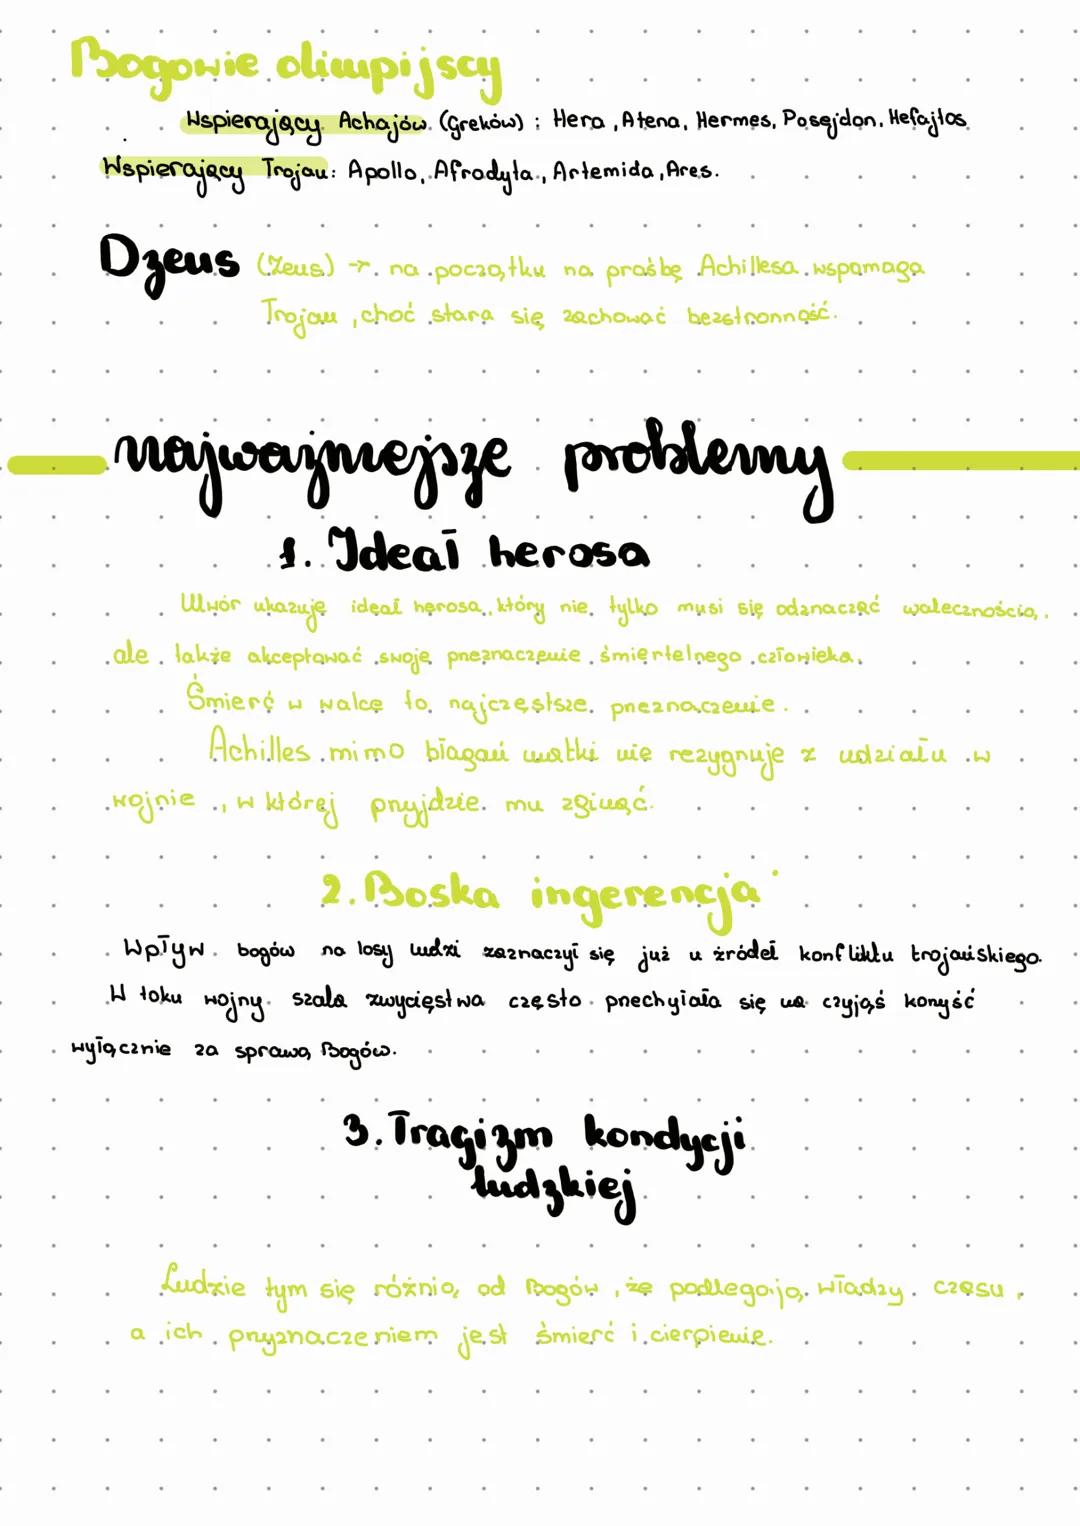 Bogowie olimpijscy
Wspierający Achajów (Greków) : Hera, Atena, Hermes, Posejdon, Hefajtos
Wspierający Trojan: Apollo, Afrodyta, Artemida, Ares.
Dzeus (Zeus) → na początku na prośbę Achillesa wspomaga
Trojan, choć stara się zachować bezstronność.
najważniejsze problemy
1. Ideał herosa
Utwór ukazuję ideał herosa, który nie tylko musi się odznaczać walecznością,
ale także akceptować swoje przeznaczenie śmiertelnego człowieka.
Śmierć w walce to najczęstsze przeznaczenie.
Achilles mimo błagań matki nie rezygnuje z udziału w
wojnie, w której przyjdzie mu zginąć.
2. Boska ingerencja
Wpływ bogów na losy ludzi zaznaczył się już u źródeł konfliktu trojańskiego.
W toku wojny szala zwycięstwa często przechylała się na czyjąś korzyść
wyłącznie za sprawą Bogów.
3. Tragizm kondycji
ludzkiej
Ludzie tym się różnią od Bogów, że podlegają władzy czasu,
a ich pryznaczeniem jest śmierć i cierpienie.